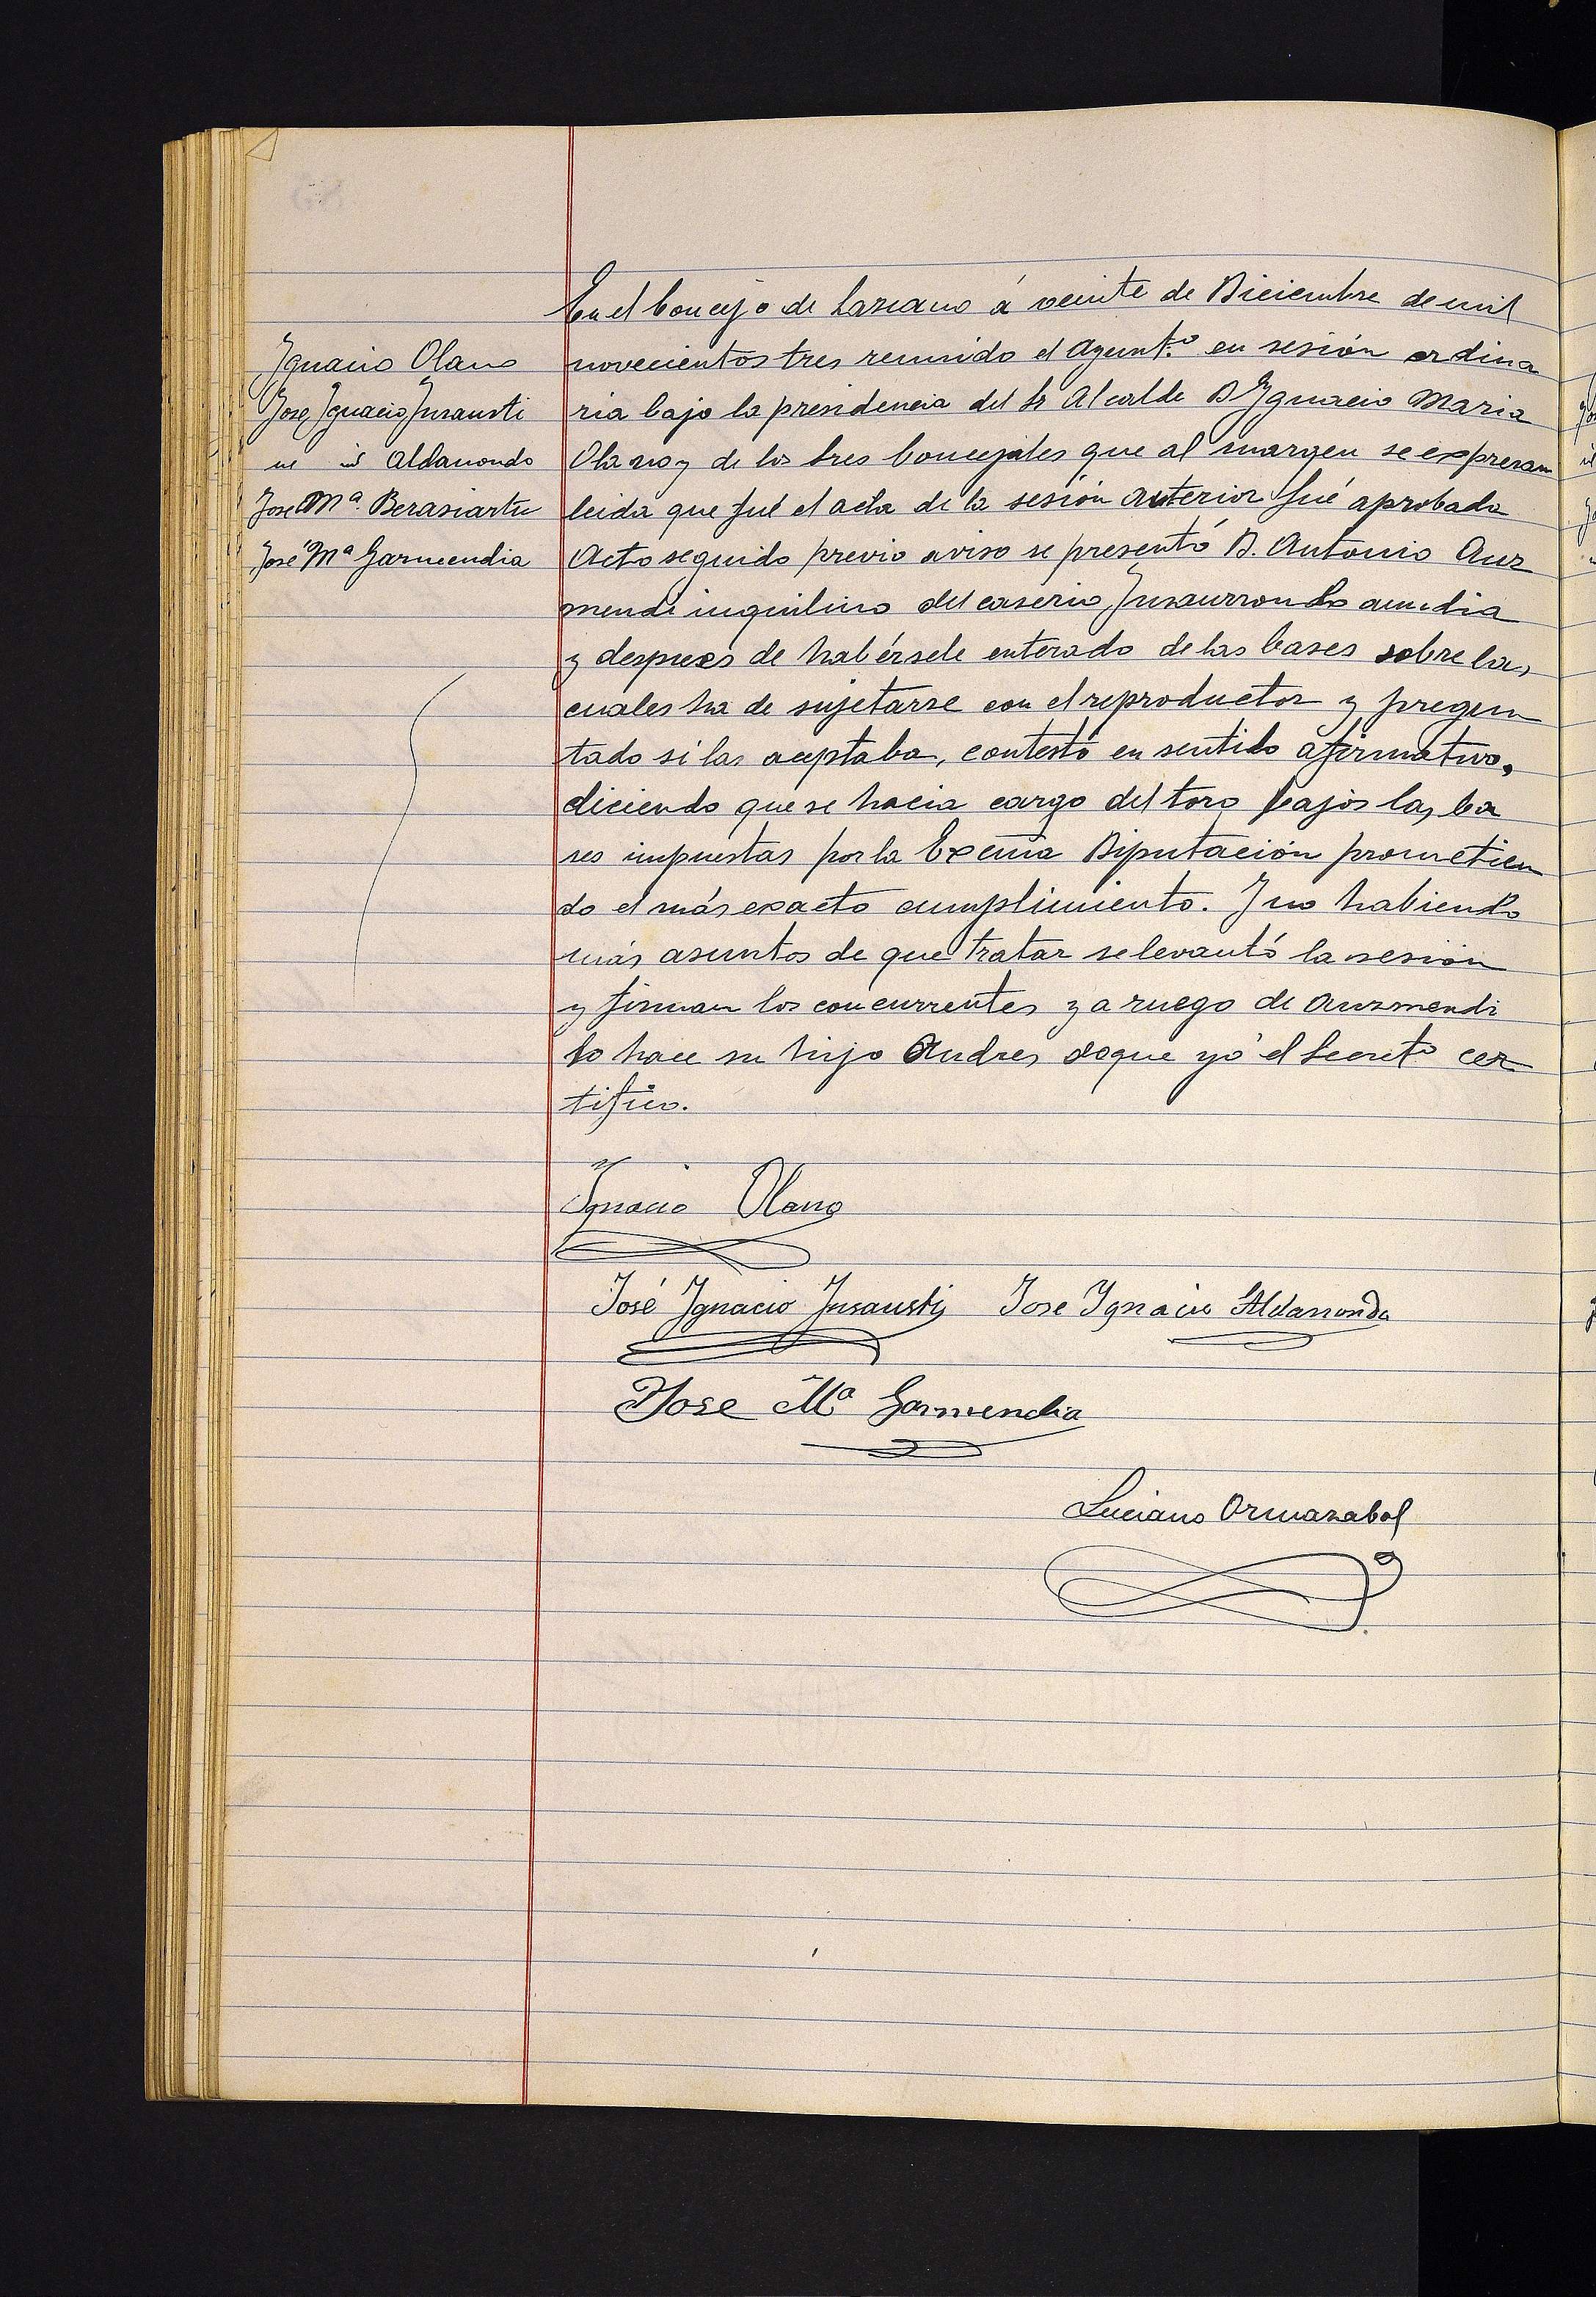 En el Concejo de Lazcano á veinte de Diciembre de mil
Ignacio Olano
novecientos tres reunido el Ayunt.º en sesión ordina
José Ignacio Insausti
ria bajo la presidencia del Sr Alcalde D Ygnacio Maria
id id Aldanondo
Olano y de los tres Concejales que al margen se expresan
José Mª. Berasiartu
leida que fué el acta de la sesión anterior fué aprobada
José Mª Garmendia
Acto seguido previo aviso se presentó D. Antonio Auz
mendi inquilino del caserio Insaurrondo aundia
y despues de habérsele enterado de las bases sobre las
cuales ha de sujetarse con el reproductor y pregun
tado si las aceptaba, contestó en sentido afirmativo,
diciendo que se hacia cargo del toro bajos las ba
ses impuestas por la Excma Diputación prometien
do el más exacto cumplimiento. Y no habiendo
más asuntos de que tratar se levantó la sesión
y firman los concurrentes y a ruego de Auzmendi
lo hace su hijo Andres doque yó el Secretº cer
tifico.
Ignacio Olano
José Ygnacio Insausti Jose Ygnacio Aldanondo
Jose Mª Garmendia
Luciano Ormazabal